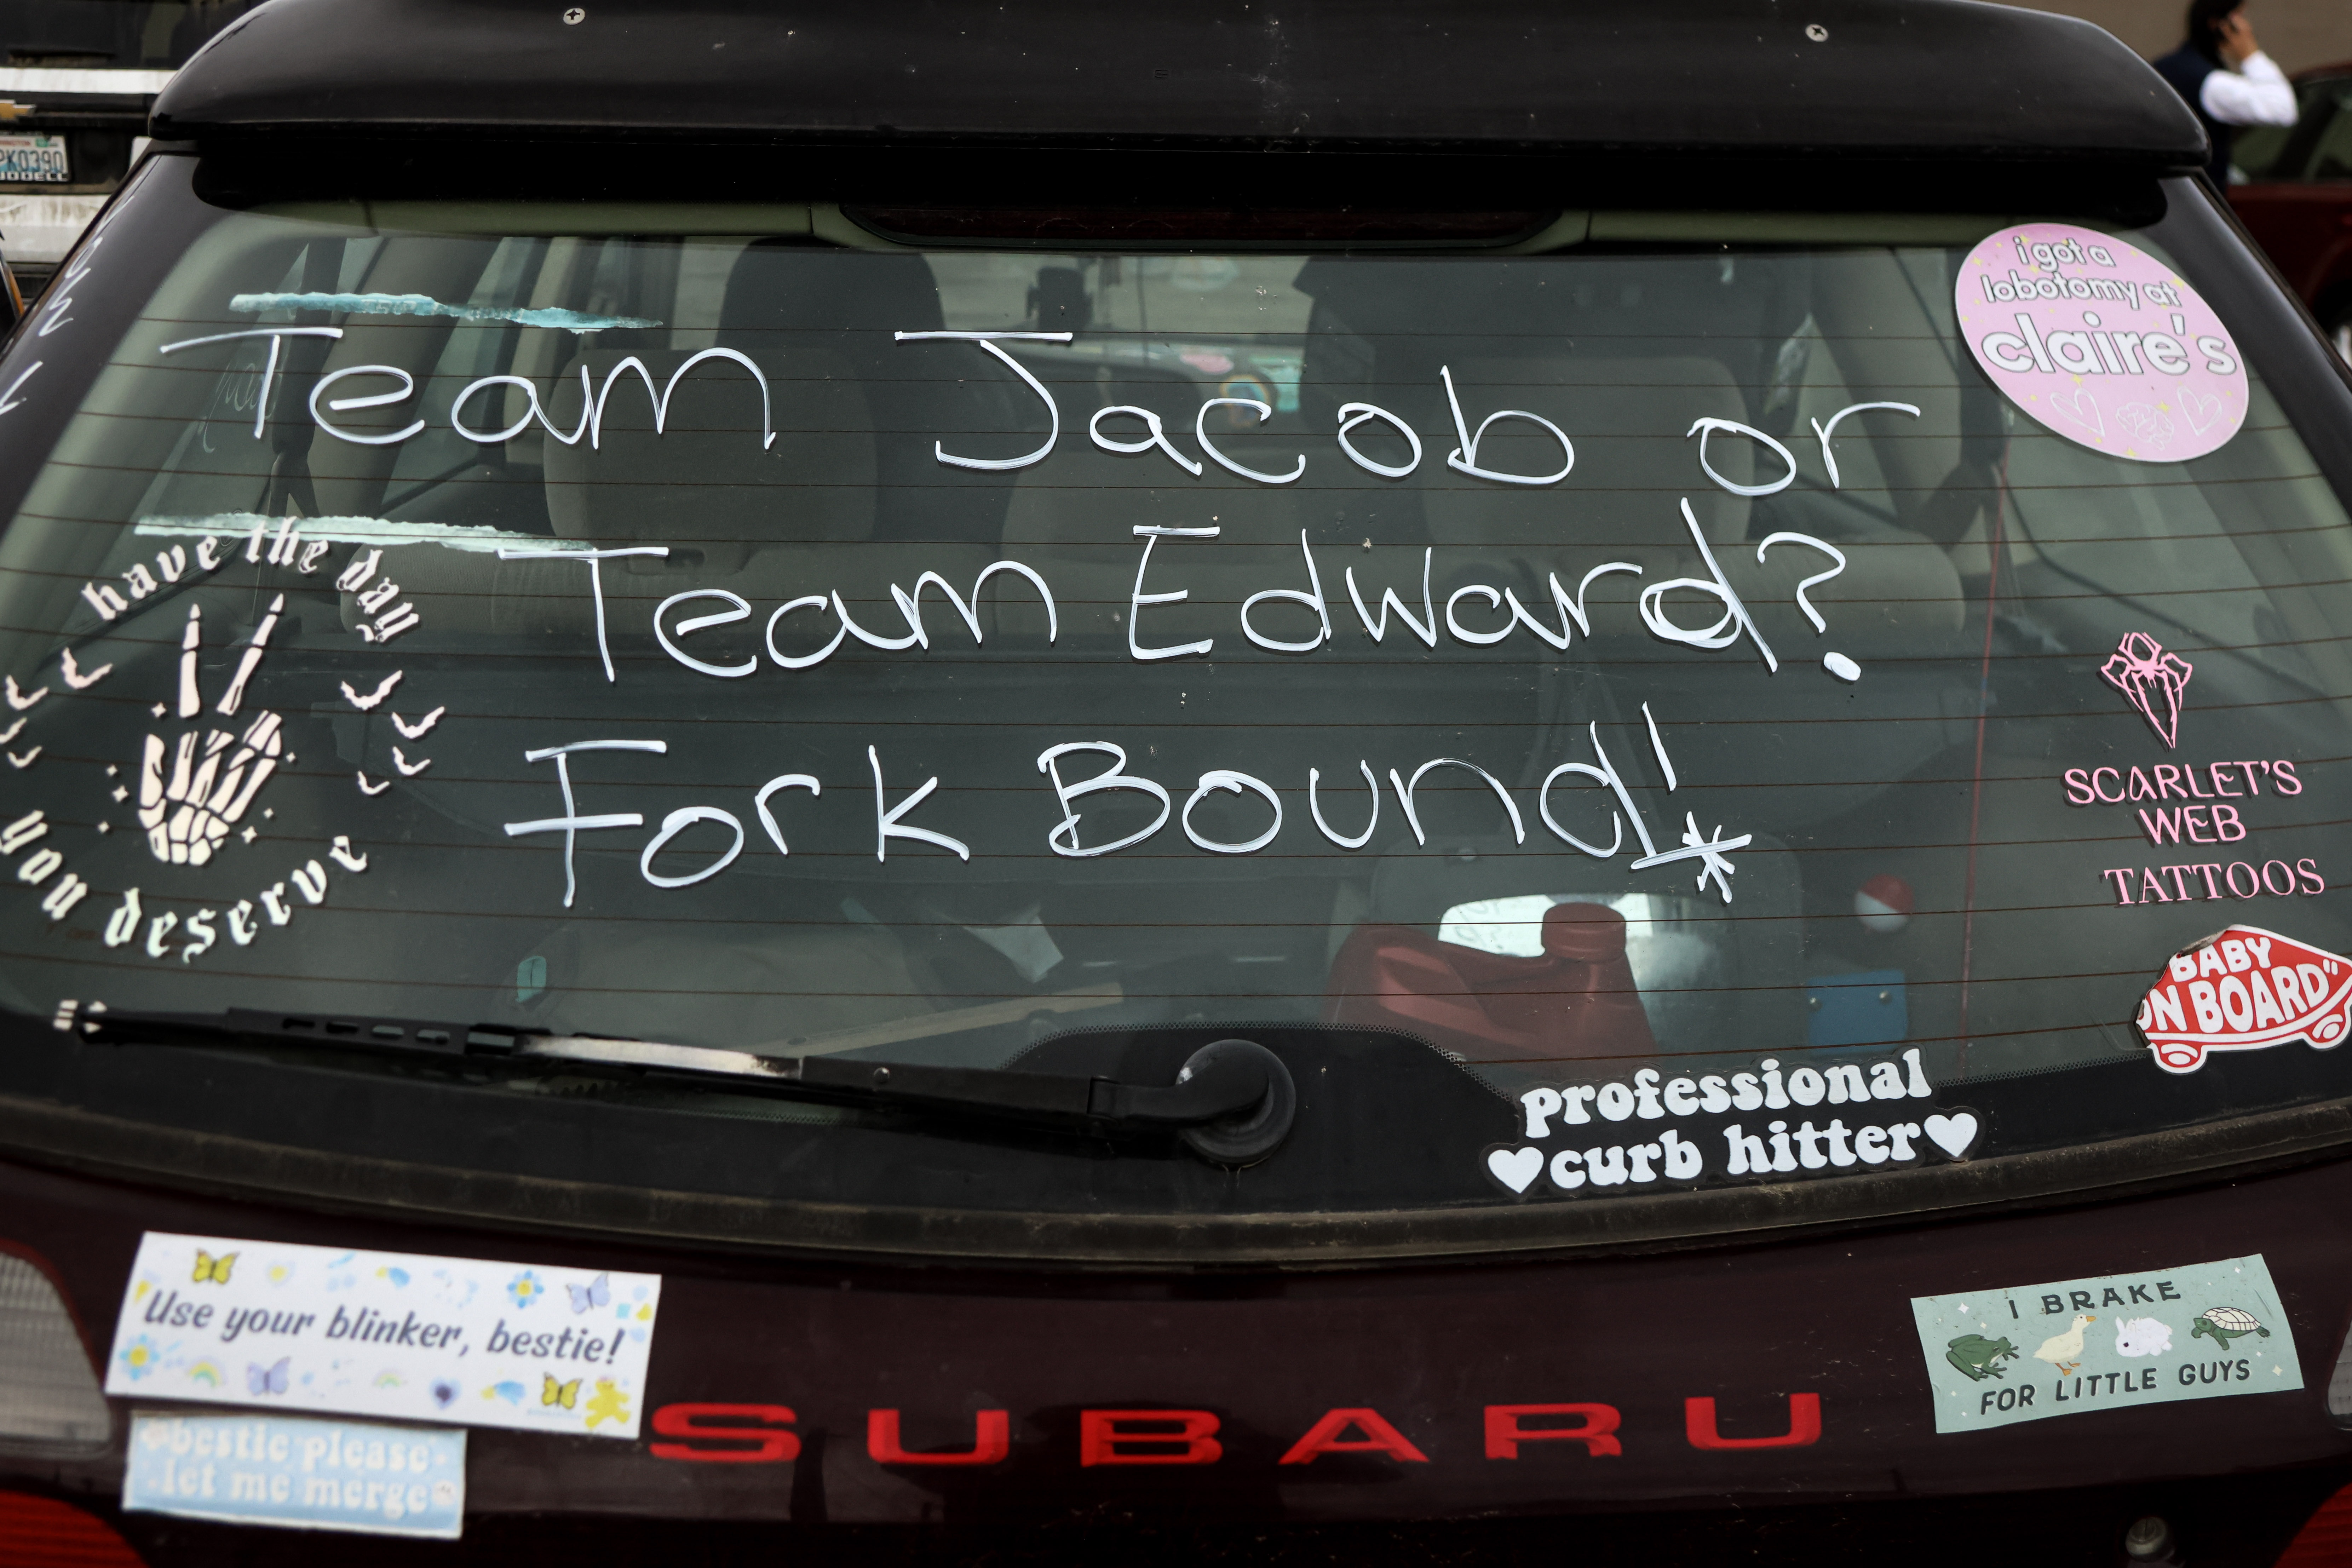 PK0390
i got a
lobotomy at
claire's
Team Jacob or
Team Edward?
Fork Bound!
have the day
you deserve
SCARLET'S
WEB
TATTOOS
BABY
ON BOARD"
professional
curb hitter
Use your blinker, bestie!
bestie please
let me merge
SUBARU
I BRAKE
FOR LITTLE GUYS